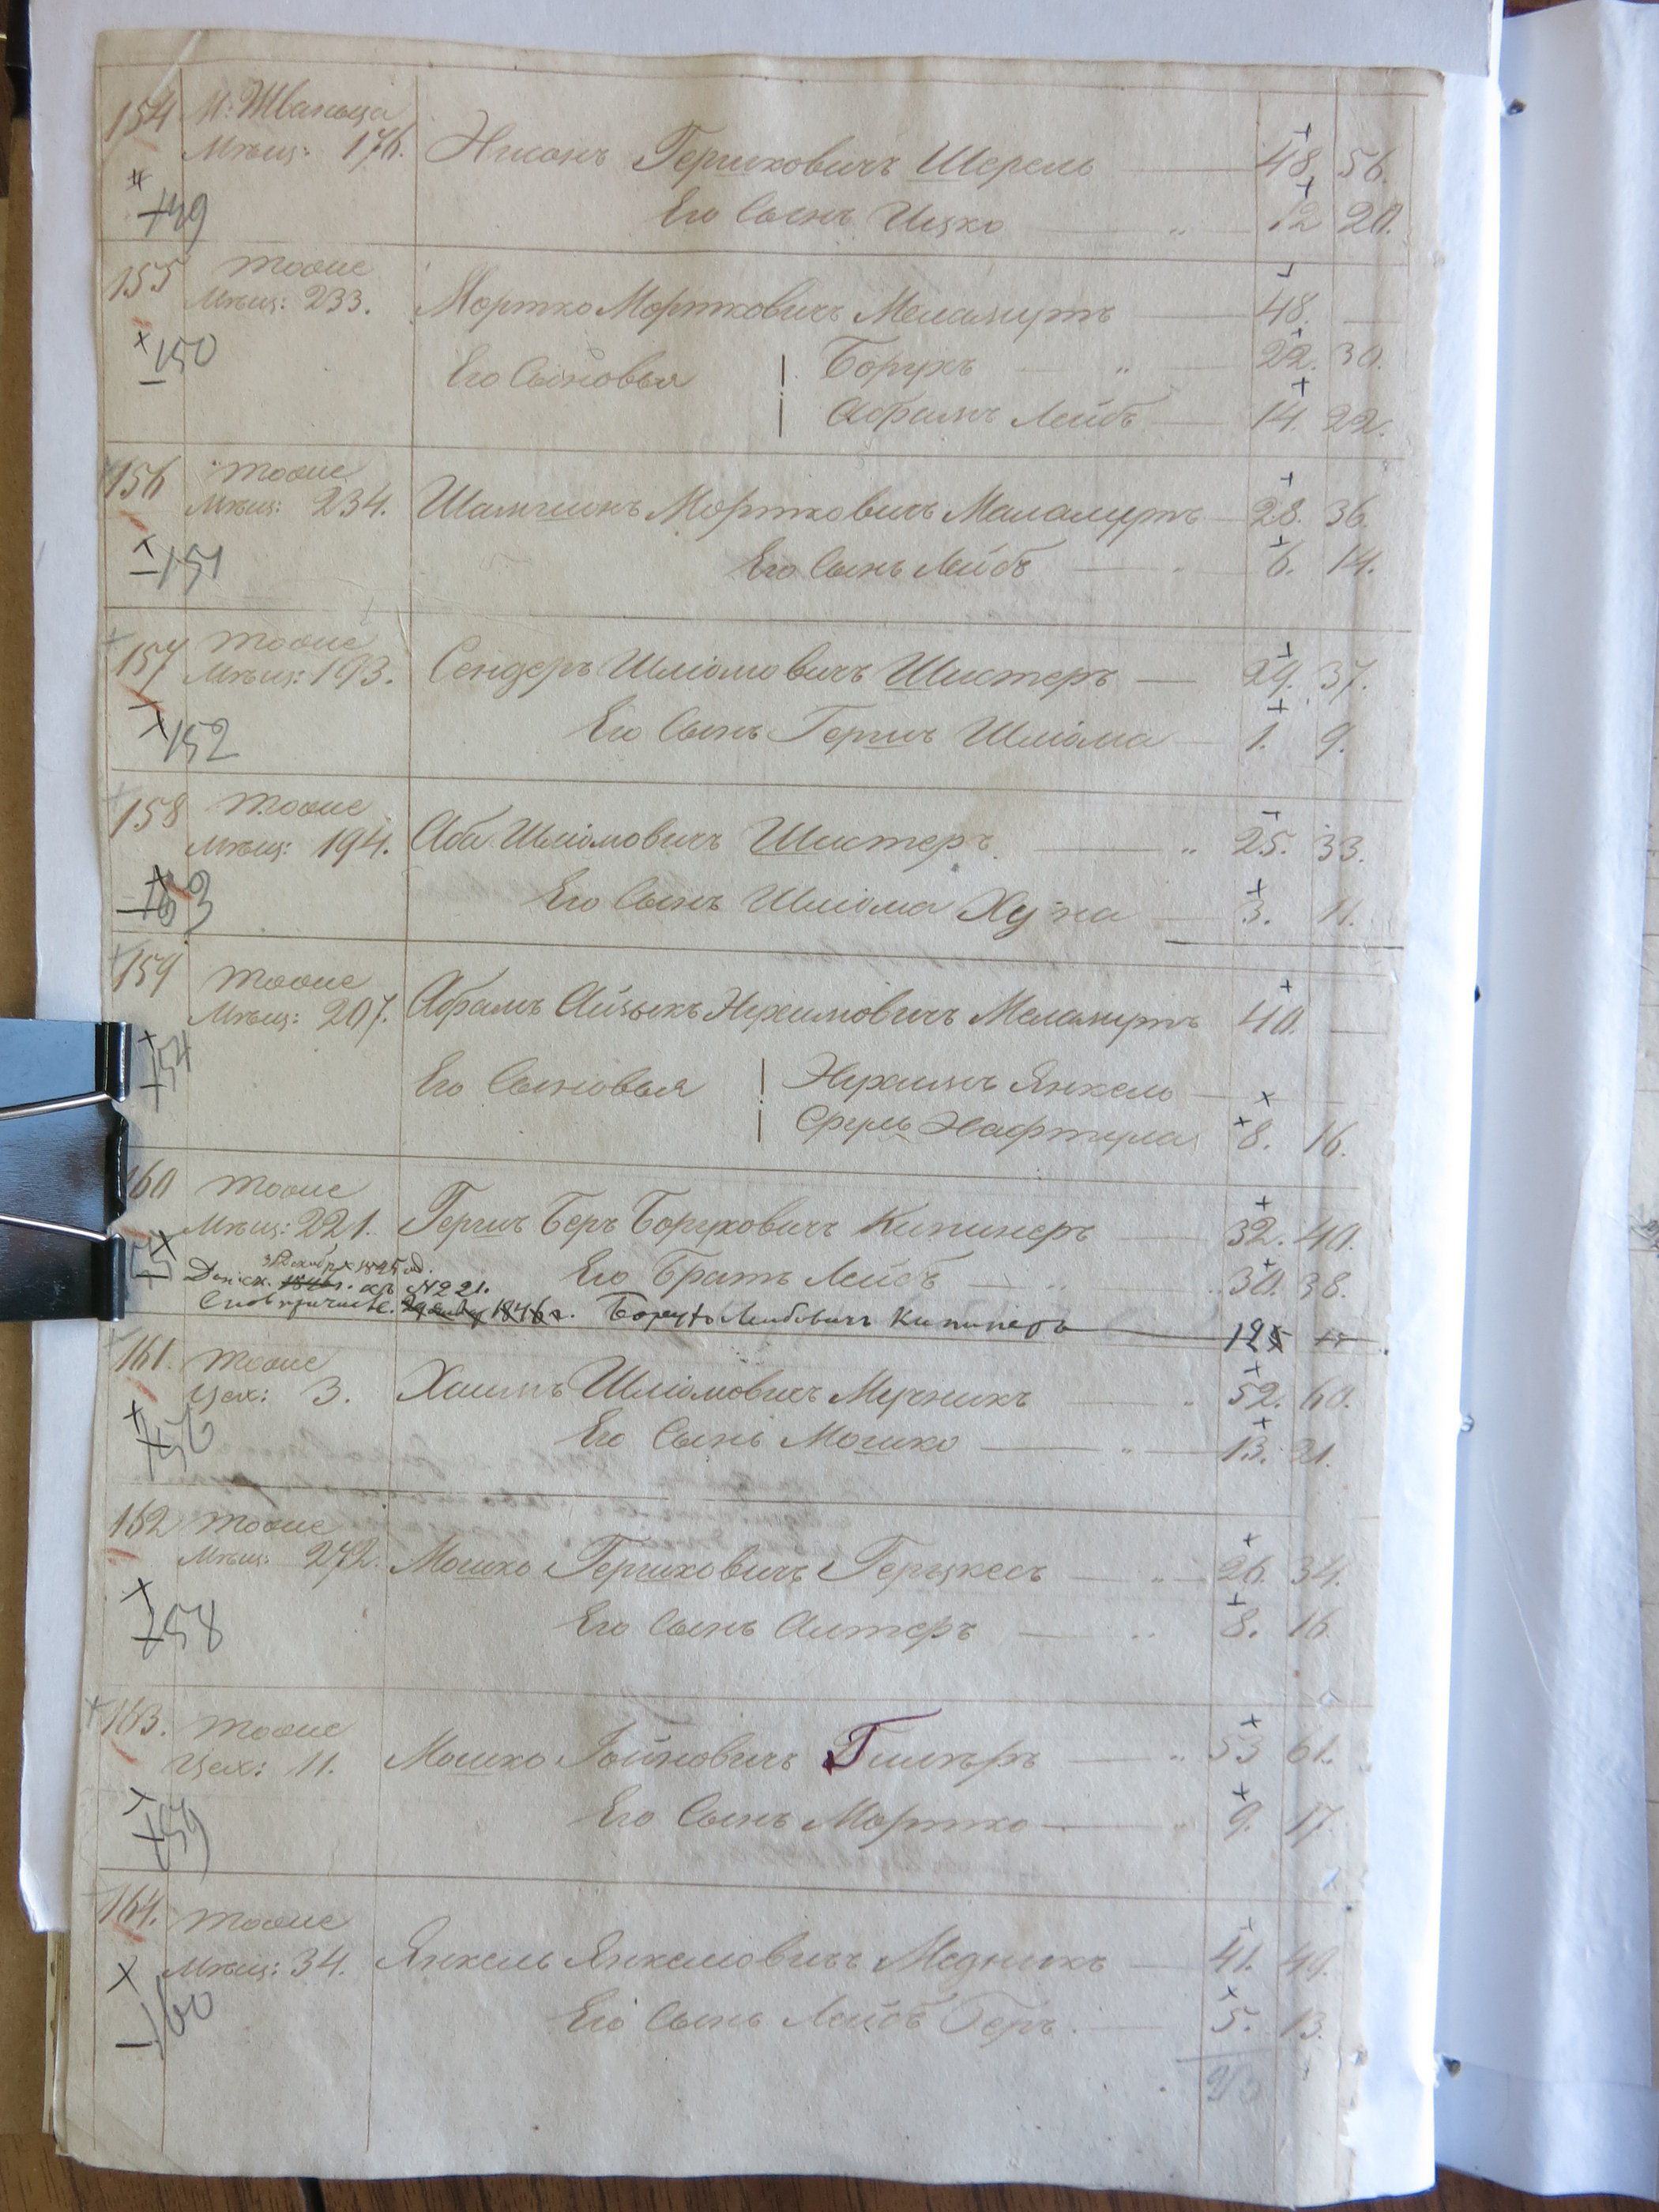 154 М: Жванца
Мѣщ: 176. Нисонъ Гершковичъ Шерель 48. 56.
149 Его Сынъ Ицко 12 20.
155 тоже
Мѣщ: 233. Мортко Мортковичъ Меламутъ 48.
150 Его Сыновья Борухъ 22. 30.
Абрамъ Лейбъ 14. 22.
156 тоже
Мѣщ: 234. Шамшинъ Мортковичъ Маламутъ 28. 36.
151 Его Сынъ Лейбъ 6. 14.
157 тоже
Мѣщ: 193. Сендеръ Шліомовичъ Шистеръ 29. 37.
152 Его Сынъ Гершъ Шліома 1. 9.
158 тоже
Мѣщ: 194. Аба Шліомовичъ Шистеръ 25. 33.
153 Его Сынъ Шліома Хуна 3. 11.
159 тоже
Мѣщ: 207. Абрамъ Айзыкъ Нухимовичъ Меламутъ 40.
154 Его Сыновья Нухимъ Янкель
Сруль Нафтула 8. 16.
160 тоже
Мѣщ: 221. Гершъ Беръ Боруховичъ Кипинеръ 32. 40.
Его Братъ Лейбъ 30. 38.
№ 221.
1846 г. Борухъ Лейбовичъ Кипинеръ 12
161. тоже
Цех: 3. Хаимъ Шліомовичъ Мучникъ 52. 60.
156 Его Сынъ Мошко 13. 21.
162 тоже
Мѣщ: 272. Мошко Гершковичъ Герцкесъ 26. 34.
158 Его Сынъ Алтеръ 8. 16.
163. тоже
Цех: 11. Мошко Іойновичъ Гилъръ 53 61.
159 Его Сынъ Мортко 9. 17.
164. тоже
Мѣщ: 34. Янкель Янкелювичъ Медникъ 41. 49.
160 Его Сынъ Лейбъ Геръ 5. 13.